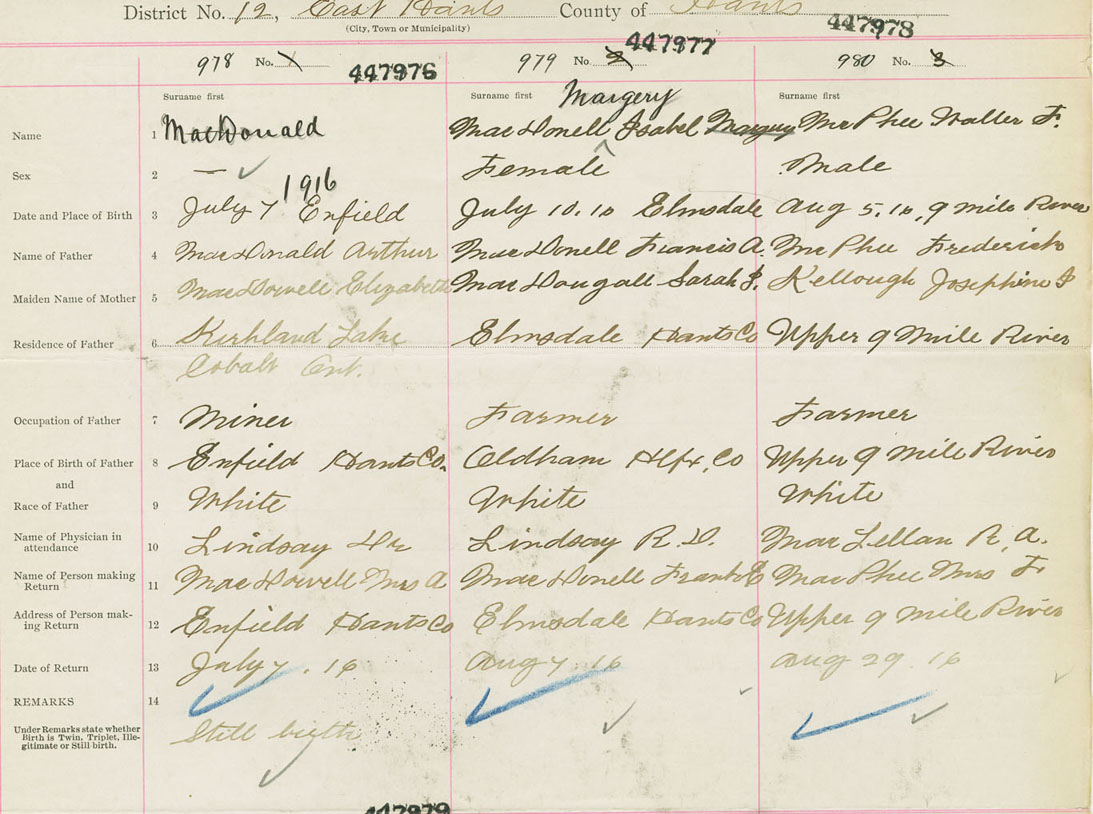 District No. 12, East Hants County of Hants
(City, Town or Municipality)
447978
447977
447976
978 No. 1 979 No. 2 980 No. 3
Surname first Surname first Surname first
Margery
Name 1 MacDonald MacDonell Isabel Margery McPhee Walter F.
Sex 2 — Female Male
1916
Date and Place of Birth 3 July 7 Enfield July 10.16 Elmsdale Aug 5.16, 9 mile River
Name of Father 4 MacDonald Arthur MacDonell Francis A. McPhee Frederick
Maiden Name of Mother 5 MacDowell Elizabeth MacDougall Sarah J. Kellough Josephine J
Residence of Father 6 Kirkland Lake Elmsdale Hants Co Upper 9 Mile River
Cobalt Ont.
Occupation of Father 7 Miner Farmer Farmer
Place of Birth of Father 8 Enfield Hants Co. Oldham Hlfx, Co Upper 9 Mile River
and
Race of Father 9 White White White
Name of Physician in
attendance 10 Lindsay Dr Lindsay R.D. MacLellan R.A.
Name of Person making
Return 11 MacDowell Mrs A MacDonell Frank E MacPhee Mrs F
Address of Person mak-
ing Return 12 Enfield Hants Co Elmsdale Hants Co Upper 9 Mile River
Date of Return 13 July 7. 16 Aug 7 16 Aug 29 16
REMARKS 14
Under Remarks state whether
Birth is Twin, Triplet, Ille-
gitimate or Still-birth. Still birth
447979